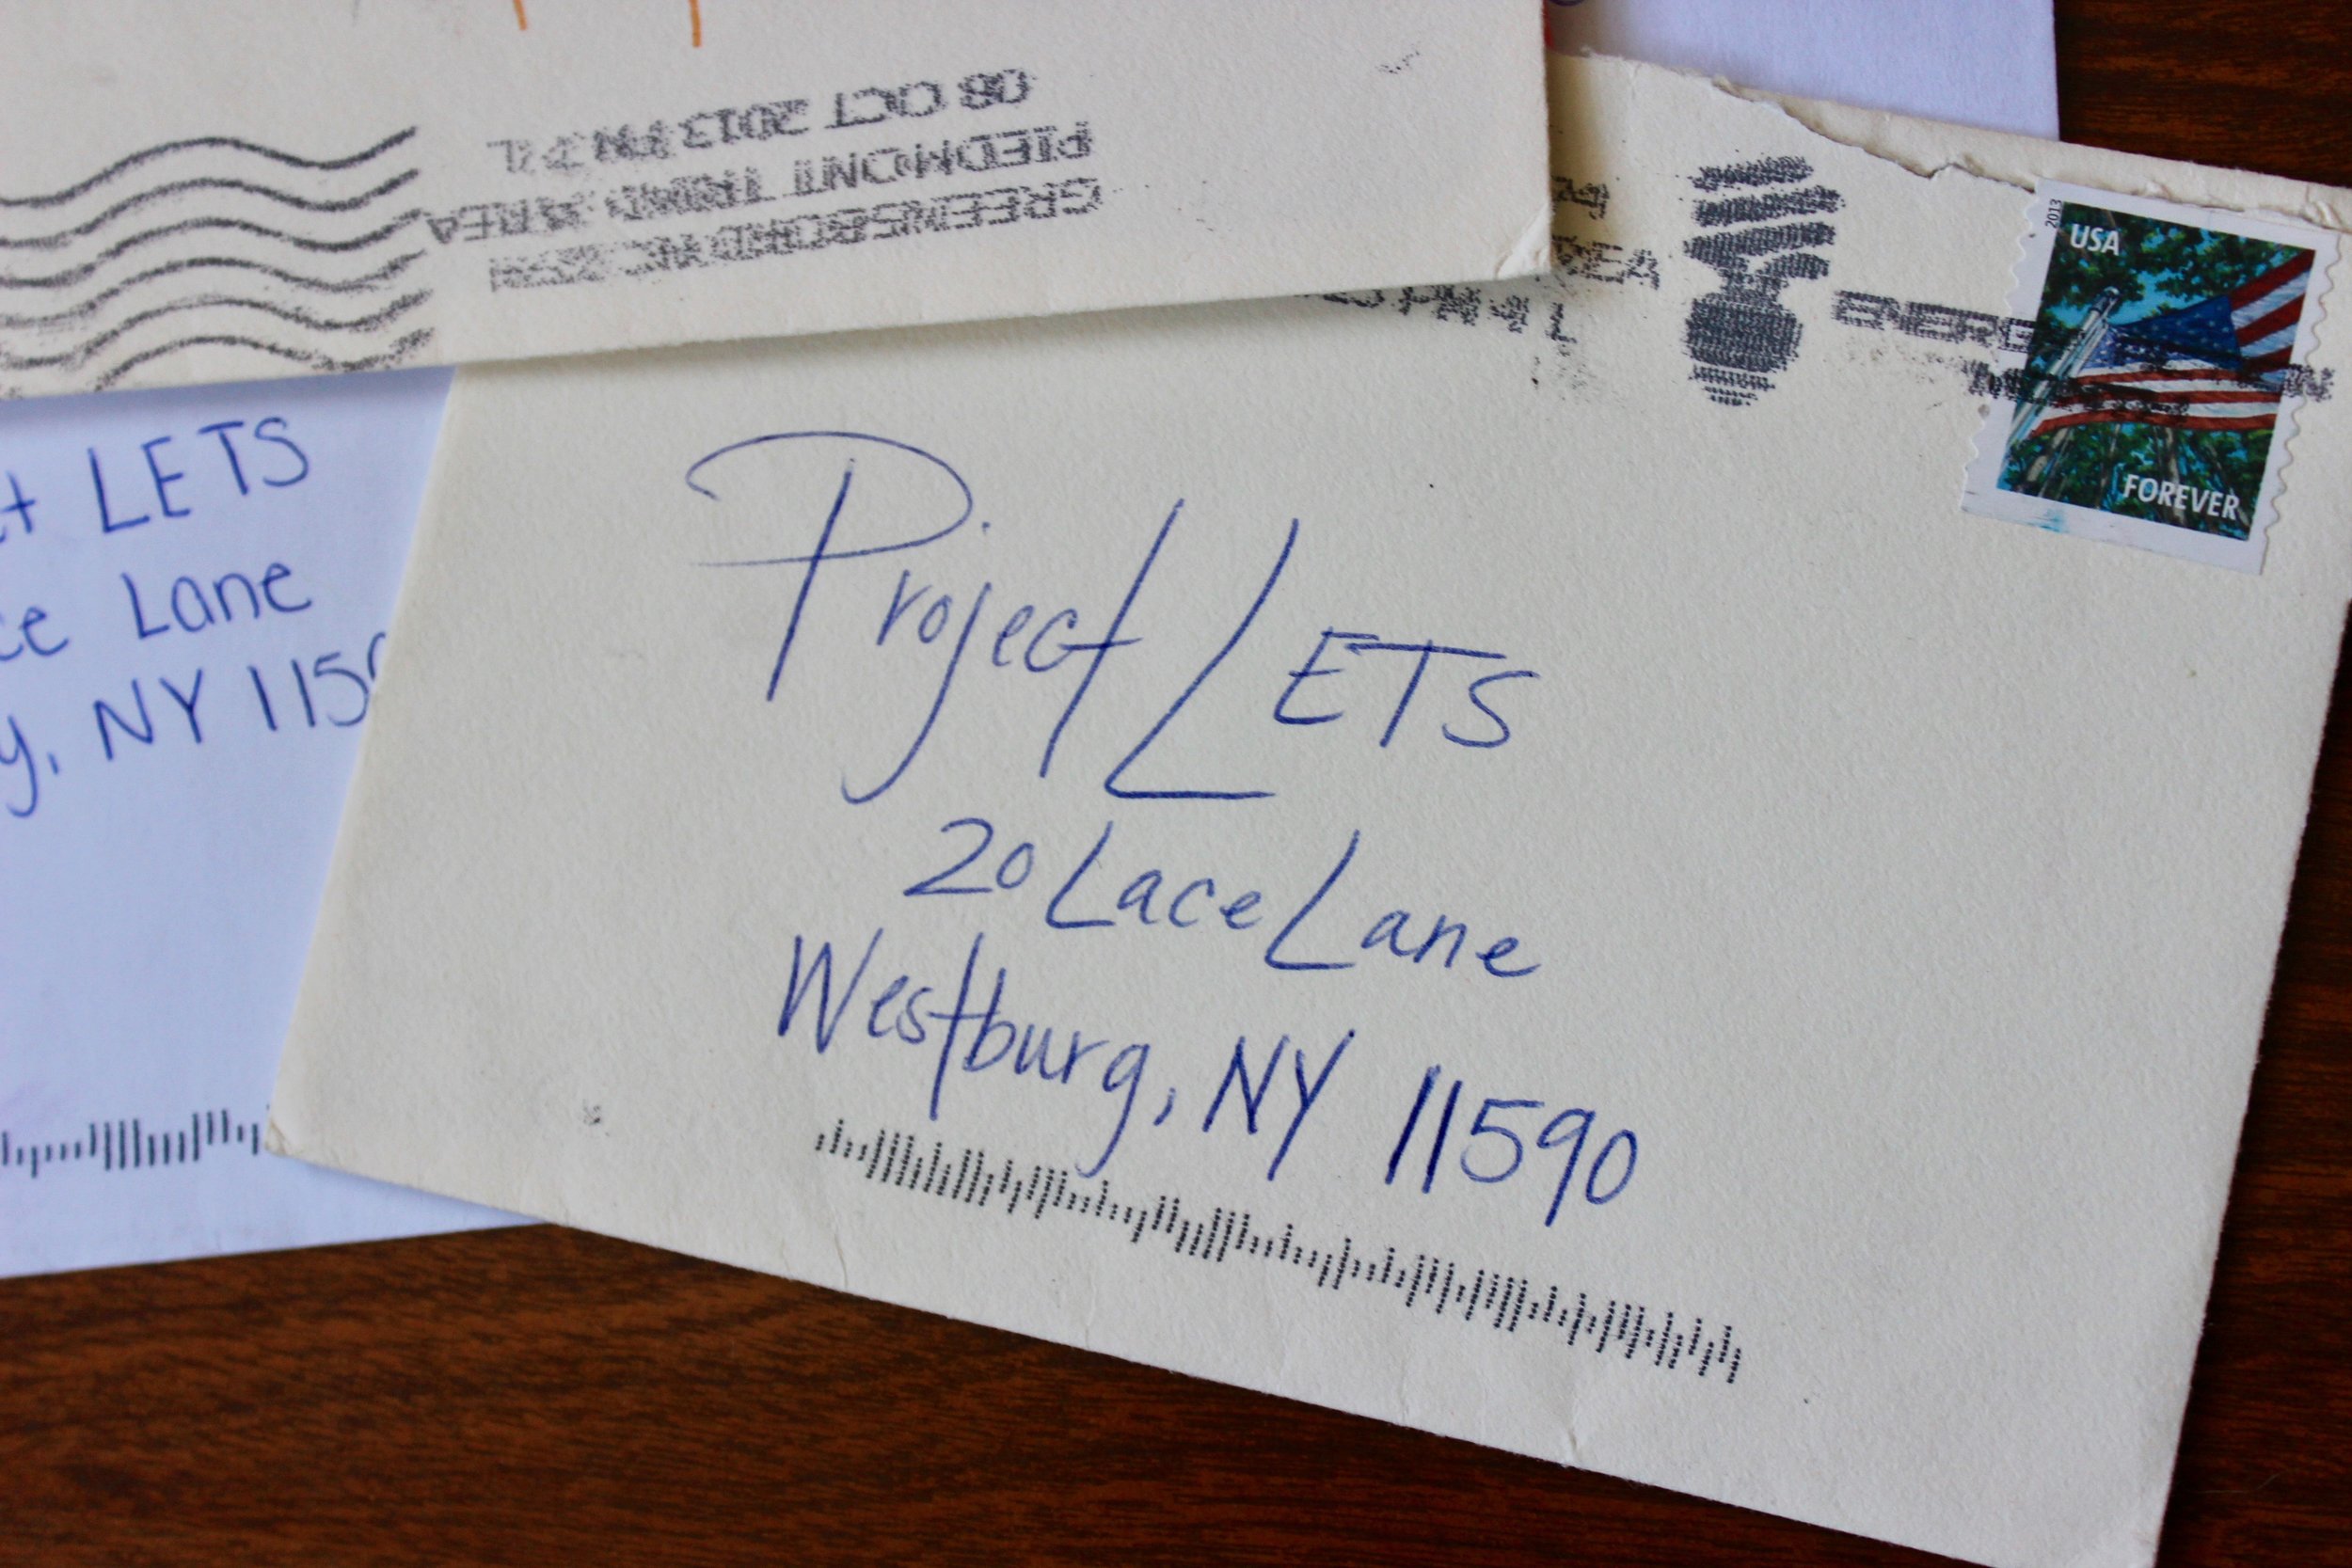 GREENSBORO NC
PIEDMONT TRIAD AREA
08 OCT 2013 PM
2013
USA
FOREVER
LETS
Lane
NY 115
Project LETS
20 Lace Lane
Westburg, NY 11590